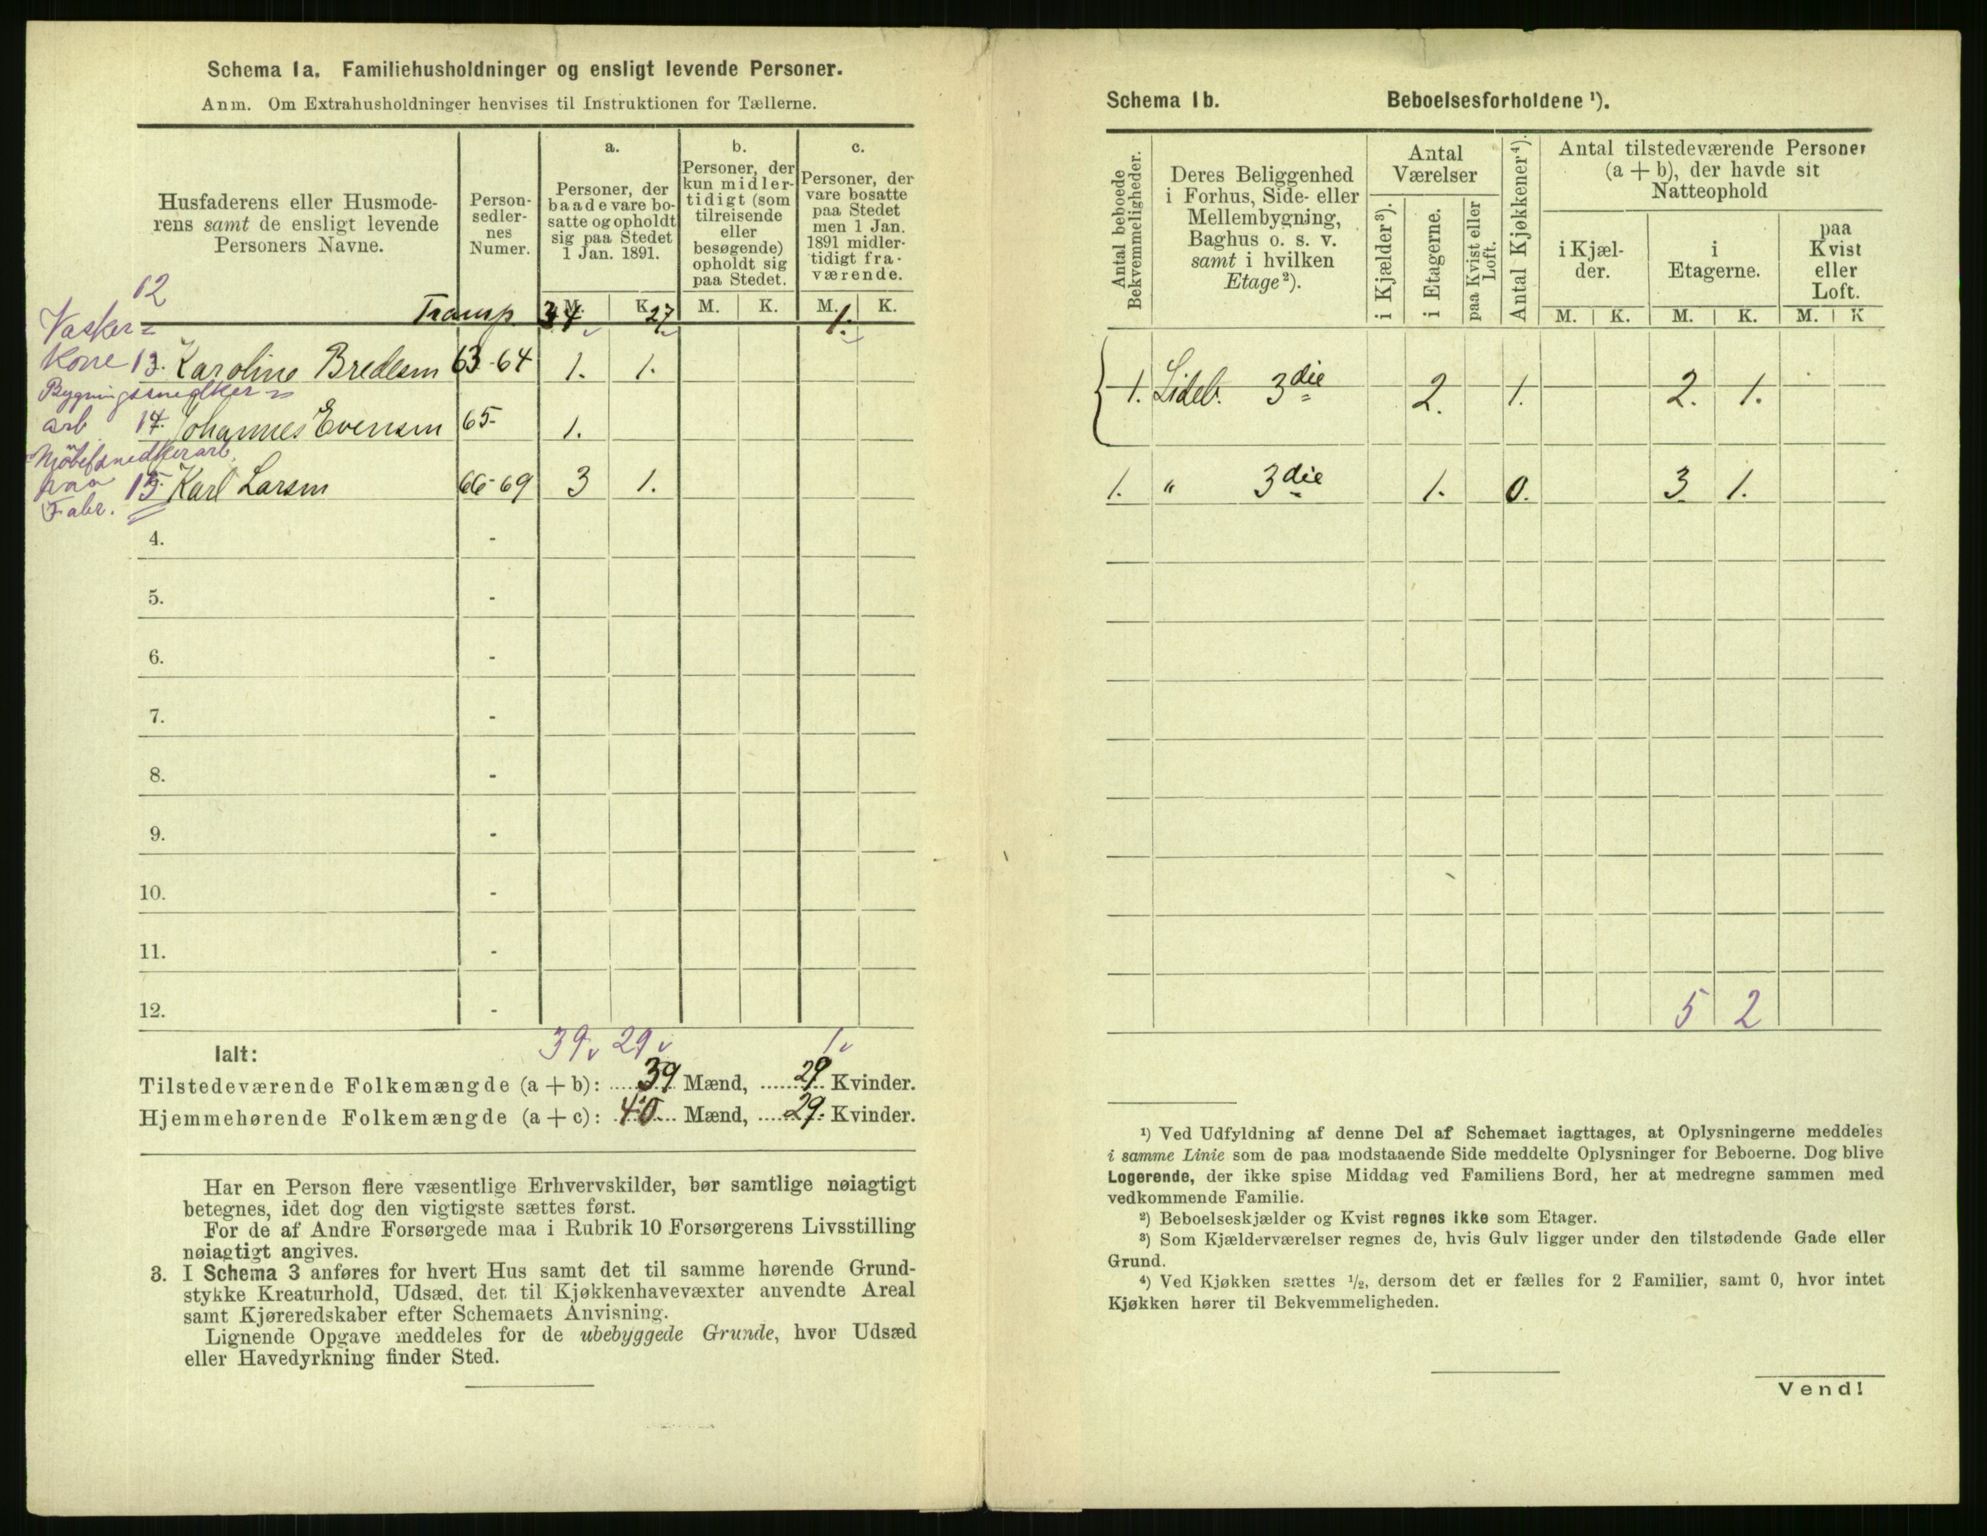 Schema 1a. Familiehusholdninger og ensligt levende Personer.
Anm. Om Extrahusholdninger henvises til Instruktionen for Tællerne.
Husfaderens eller Husmode-
rens samt de ensligt levende
Personers Navne.
Person-
sedler-
nes
Numer.
a.
Personer, der
baade vare bo-
satte og opholdt
sig paa Stedet
1 Jan. 1891.
b.
Personer, der
kun midler-
tidigt (som
tilreisende
eller
besøgende)
opholdt sig
paa Stedet.
c.
Personer, der
vare bosatte
paa Stedet
men 1 Jan.
1891 midler-
tidigt fra-
værende.
M. K. M. K. M. K.
12
Transp 34 27 1.
Vasker=
kone 13. Karoline Bredesen 63-64 1. 1.
Bygningssnedker=
arb 14. Johannes Evensen 65- 1.
Möbelsnedkerarb.
paa 15. Karl Larsen 66-69 3 1.
Fabr.
4. -
5. -
6. -
7. -
8. -
9. -
10. -
11. -
12. -
39 29 1
Ialt:
Tilstedeværende Folkemængde (a + b): 39 Mænd, 29 Kvinder.
Hjemmehørende Folkemængde (a + c): 40 Mænd, 29 Kvinder.
Har en Person flere væsentlige Erhvervskilder, bør samtlige nøiagtigt
betegnes, idet dog den vigtigste sættes først.
For de af Andre Forsørgede maa i Rubrik 10 Forsørgerens Livsstilling
nøiagtigt angives.
3. I Schema 3 anføres for hvert Hus samt det til samme hørende Grund-
stykke Kreaturhold, Udsæd, det til Kjøkkenhavevæxter anvendte Areal
samt Kjøreredskaber efter Schemaets Anvisning.
Lignende Opgave meddeles for de ubebyggede Grunde, hvor Udsæd
eller Havedyrkning finder Sted.
Schema 1b. Beboelsesforholdene ¹).
Antal beboede
Bekvemmeligheder.
Deres Beliggenhed
i Forhus, Side- eller
Mellembygning,
Baghus o. s. v.
samt i hvilken
Etage²).
Antal
Værelser
i Kjælder³).
i Etagerne.
paa Kvist eller
Loft.
Antal Kjøkkener⁴).
Antal tilstedeværende Personer
(a + b), der havde sit
Natteophold
i Kjæl-
der.
i
Etagerne.
paa
Kvist
eller
Loft.
M. K. M. K. M. K
1. Sideb. 3die 2. 1. 2. 1.
1. " 3die 1. 0. 3 1.
5 2
¹) Ved Udfyldning af denne Del af Schemaet iagttages, at Oplysningerne meddeles
i samme Linie som de paa modstaaende Side meddelte Oplysninger for Beboerne. Dog blive
Logerende, der ikke spise Middag ved Familiens Bord, her at medregne sammen med
vedkommende Familie.
²) Beboelseskjælder og Kvist regnes ikke som Etager.
³) Som Kjælderværelser regnes de, hvis Gulv ligger under den tilstødende Gade eller
Grund.
⁴) Ved Kjøkken sættes ½, dersom det er fælles for 2 Familier, samt 0, hvor intet
Kjøkken hører til Bekvemmeligheden.
Vend!